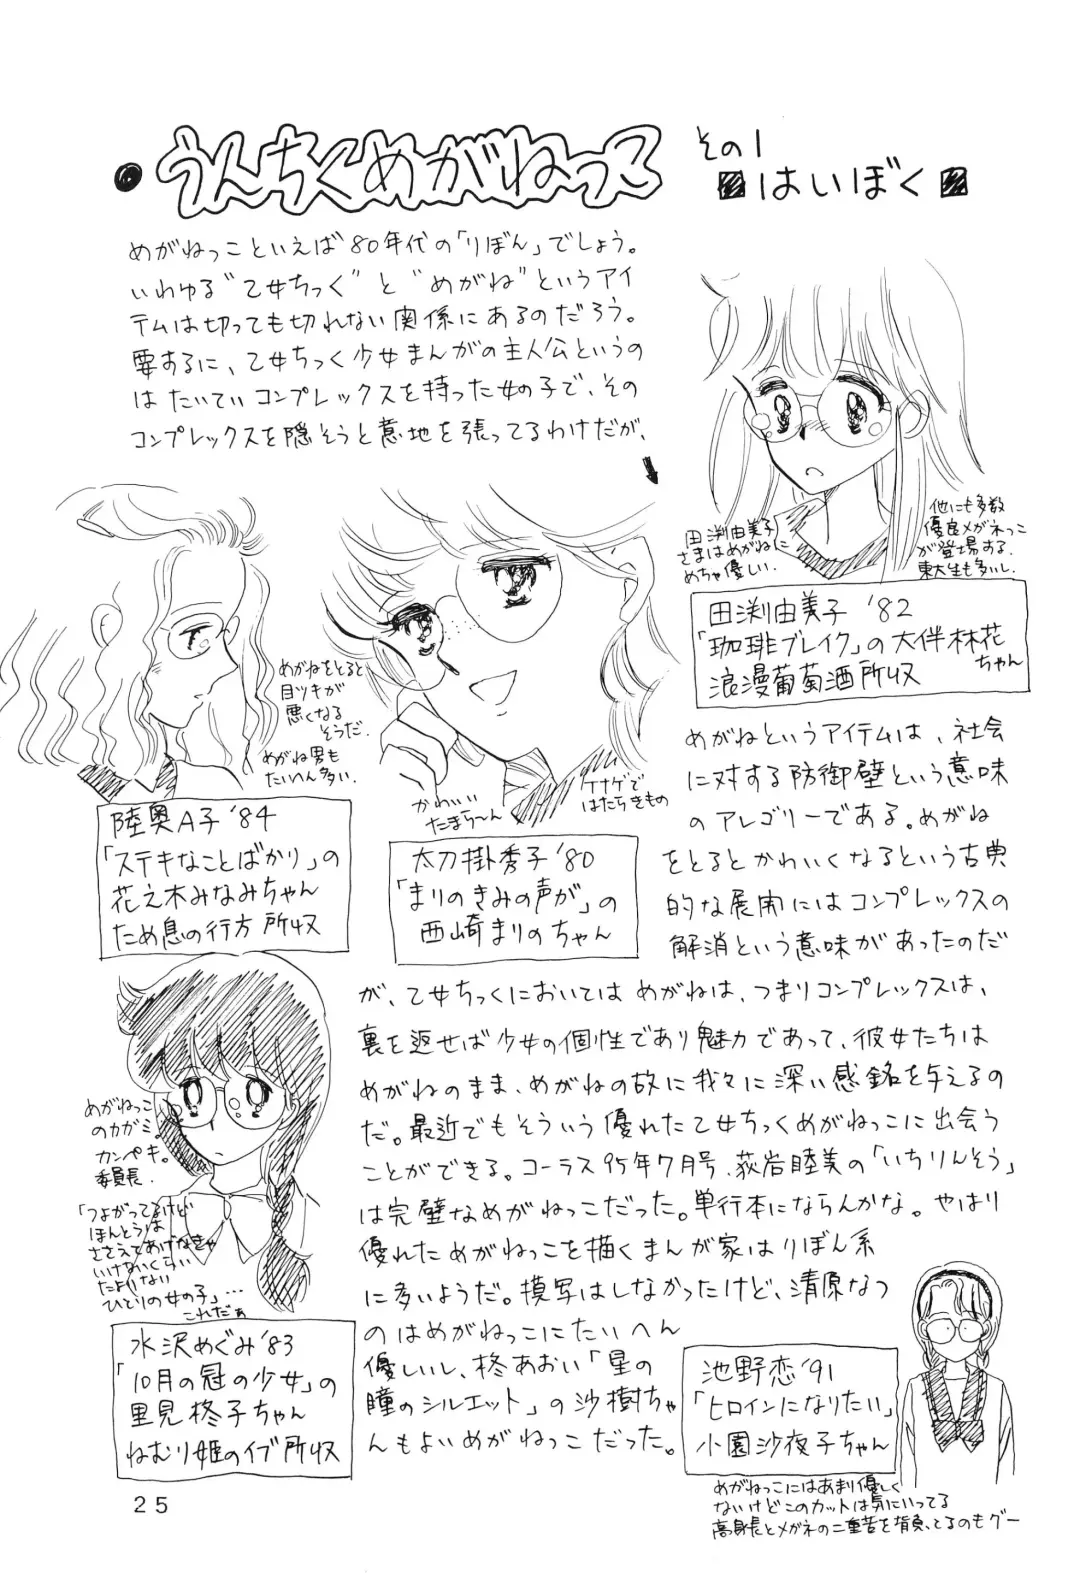 ●うんちくめがねっ子
その1
■はいぼく■
めがねっこといえば80年代の「りぼん」でしょう。
いわゆる“乙女ちっく”と“めがね”というアイ
テムは切っても切れない関係にあるのだろう。
要するに、乙女ちっく少女まんがの主人公というの
はたいていコンプレックスを持った女の子で、その
コンプレックスを隠そうと意地を張ってるわけだが、
田渕由美子
さまはめがねに
めちゃ優しい.
他にも多数
優良メガネっこ
が登場する.
東大生も多いし.
田渕由美子 '82
「珈琲ブレイク」の大伴林花
ちゃん
浪漫葡萄酒所収
めがねをとると
目ツキが
悪くなる
そうだ.
めがね男も
たいへん多い.
陸奥A子'84
「ステキなことばかり」の
花之木みなみちゃん
ため息の行方所収
かわいい
たまら〜ん
ケナゲで
はたらきもの
太刀掛秀子'80
「まりのきみの声が」の
西崎まりのちゃん
めがねというアイテムは、社会
に対する防御壁という意味
のアレゴリーである。めがね
をとるとかわいくなるという古典
的な展開にはコンプレックスの
解消という意味があったのだ
が、乙女ちっくにおいてはめがねは、つまりコンプレックスは、
裏を返せば少女の個性であり魅力であって、彼女たちは
めがねのまま、めがねの故に我々に深い感銘を与えるの
だ。最近でもそういう優れた乙女ちっくめがねっこに出会う
ことができる。コーラス95年7月号、荻岩睦美の「いちりんそう」
は完璧なめがねっこだった。単行本にならんかな。やはり
優れためがねっこを描くまんが家はりぼん系
に多いようだ。模写はしなかったけど、清原なつ
のはめがねっこにたいへん
優しいし、柊あおい「星の
瞳のシルエット」の沙樹ちゃ
んもよいめがねっこだった。
めがねっこ
のカガミ。
カンペキ。
委員長.
「つよがってるけど
ほんとうは
ささえてあげなきゃ
いけないくらい
たよりない
ひとりの女の子」…
これだぁ
水沢めぐみ'83
「10月の冠の少女」の
里見柊子ちゃん
ねむり姫のイブ所収
池野恋'91
「ヒロインになりたい」
小園沙夜子ちゃん
めがねっこにはあまり優しく
ないけどこのカットは気にいってる
高身長とメガネの二重苦を背負ってるのもグー
25